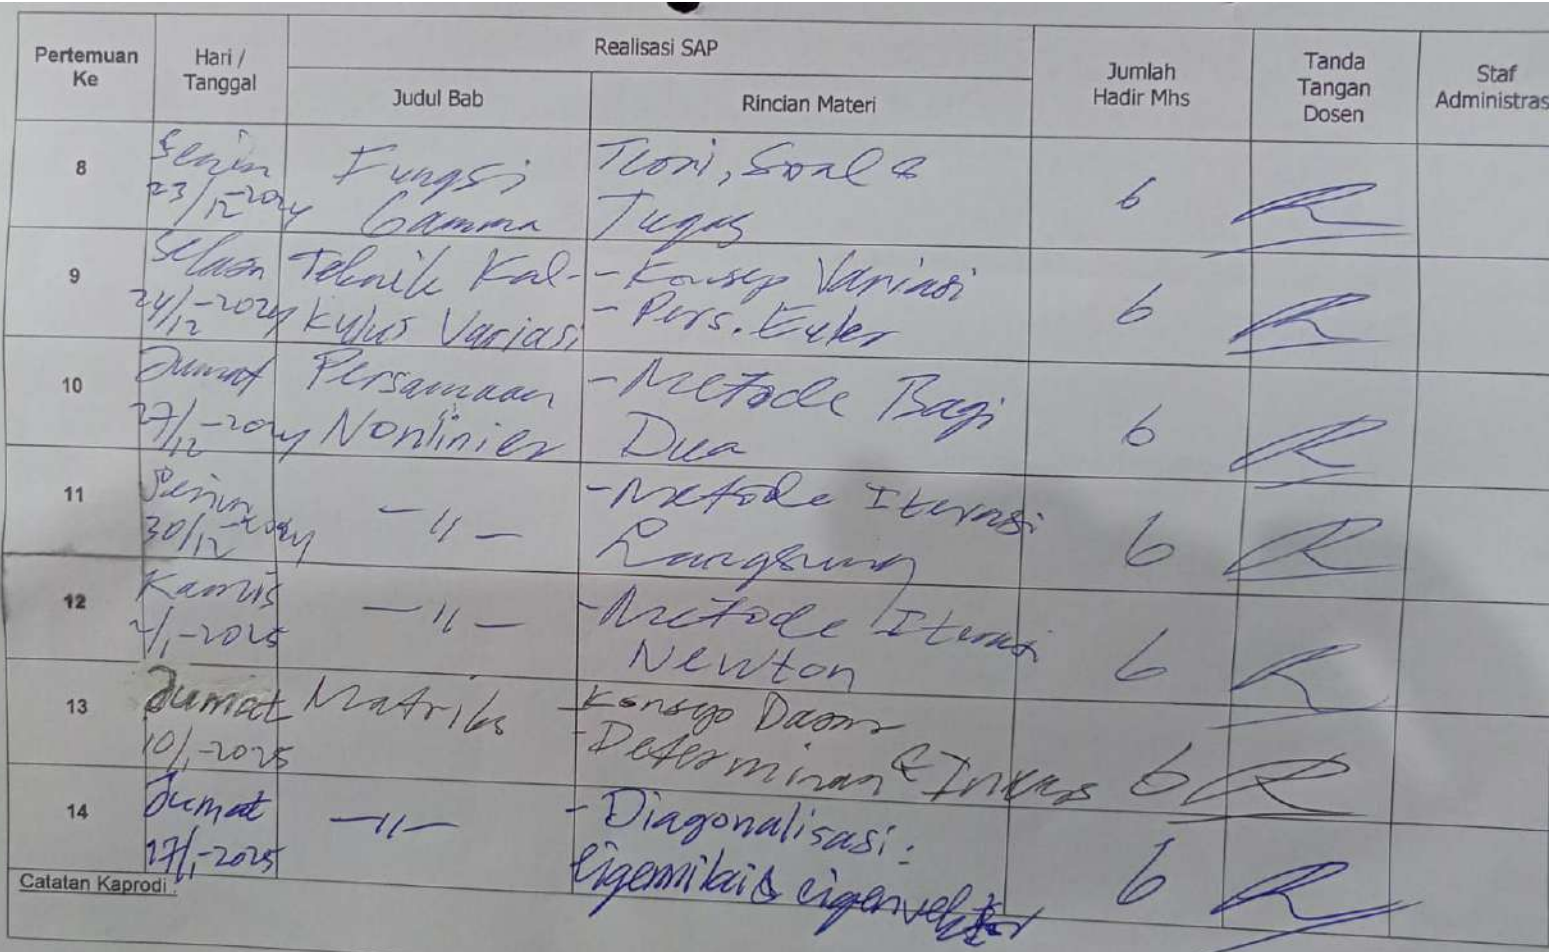 Pertemuan Ke
Hari / Tanggal
Realisasi SAP
Judul Bab
Rincian Materi
Jumlah Hadir Mhs
Tanda Tangan Dosen
Staf Administras
8
Senin
23/12-2024
Fungsi
Gamma
Teori, Soal &
Tugas
6
9
Selasa
24/12-2024
Teknik Kal-
kulus Variasi
- Konsep Variasi
- Pers. Euler
6
10
Jumat
27/12-2024
Persamaan
Nonlinier
- Metode Bagi
Dua
6
11
Senin
30/12-2024
- 〃 -
- Metode Iterasi
Langsung
6
12
Kamis
2/1-2025
- 〃 -
- Metode Iterasi
Newton
6
13
Jumat
10/1-2025
Matriks
Konsep Dasar
- Determinan & Invers
6
14
Jumat
17/1-2025
- 〃 -
- Diagonalisasi:
eigennilai & eigenvektor
6
Catatan Kaprodi :